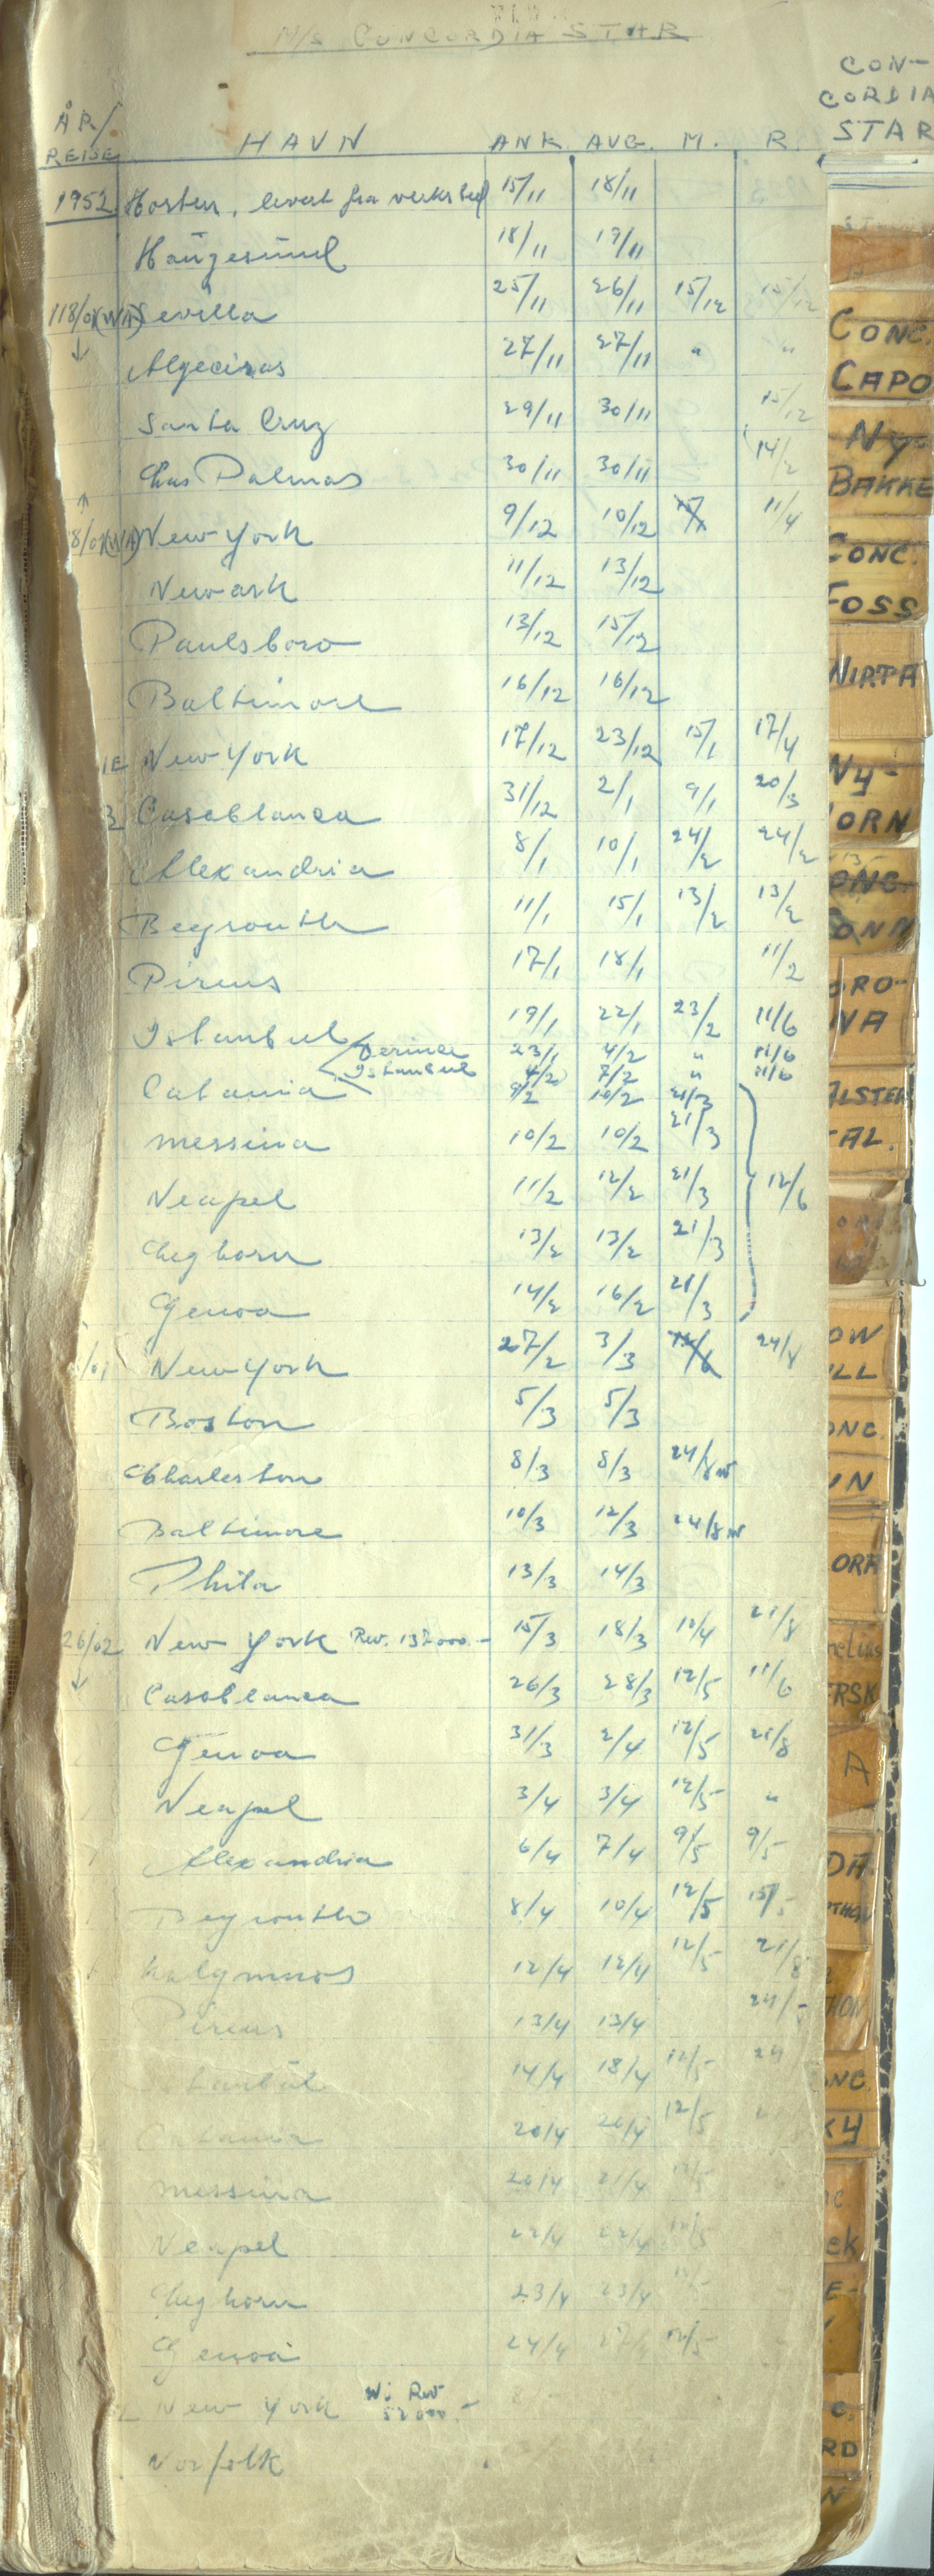 M/S CONCORDIA STAR
ÅR/REISE HAVN ANK. AVG. M. R.
1952 Horten, levert fra verksted 15/11 18/11
Haugesund 18/11 19/11
118/01(WA) Sevilla 25/11 26/11 15/12 15/12
↓ Algeciras 27/11 27/11 " "
Santa Cruz 29/11 30/11 15/12
Las Palmas 30/11 30/11 14/2
New York 9/12 10/12 11/4
Newark 11/12 13/12
Paulsboro 13/12 15/12
Baltimore 16/12 16/12
1E New York 17/12 23/12 15/1 17/4
Casablanca 31/12 2/1 9/1 20/3
Alexandria 8/1 10/1 24/2 24/2
Beyrouth 11/1 15/1 13/2 13/2
Pireus 17/1 18/1 11/2
Istanbul 19/1 22/1 23/2 11/6
Derince 23/1 4/2 " 11/6
Istanbul 4/2 7/2 " 11/6
Catania 9/2 10/2 21/3
Messina 10/2 10/2 21/3
Neapel 11/2 12/2 21/3 12/6
Leghorn 13/2 13/2 21/3
Genoa 14/2 16/2 21/3
New York 27/2 3/3 24/8
Boston 5/3 5/3
Charleston 8/3 8/3 24/8
Baltimore 10/3 12/3 24/8
Phila 13/3 14/3
26/02 New York Rev. 137000.- 15/3 18/3 10/4 21/8
↓ Casablanca 26/3 28/3 12/5 11/6
Genoa 31/3 2/4 12/5 21/8
Neapel 3/4 3/4 12/5 "
Alexandria 6/4 7/4 9/5 9/5
Beyrouth 8/4 10/4 12/5
Kalymnos 12/4 12/4 12/5 21/8
Pireus 13/4 13/4
Istanbul 14/4 18/4 12/5
Catania 20/4 20/4 12/5
Messina 20/4 21/4 12/5
Neapel 22/4 22/4 12/5
Leghorn 23/4 23/4
Genoa 24/4 12/5
New York
Norfolk
CON-
CORDIA
STAR
CONC.
CAPO
NY-
BAKKE
CONC.
FOSS
VIRTA
NY-
HORN
CONC.